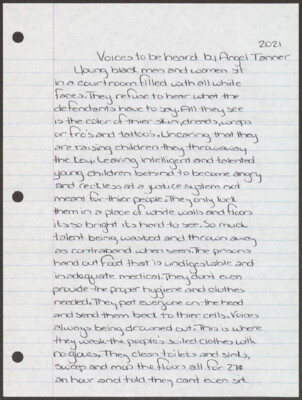 2021
Voices to be heard by Angel Tanner
Young black men and women sit
in a courtroom filled with all white
faces. They refuse to hear what the
defendants have to say. All they see
is the color of thier skin, dreads, wraps
or fro's and tattoos. Uncaring that they
are raising children they throwaway
the key. Leaving intelligent and talented
young children behind to become angry
and reckless at a justice system not
meant for thier people. They only lock
them in a place of white walls and floors
its so bright its hard to see. So much
talent being wasted and thrown away
as contraband when seen. The prisons
hand out food that is undigestable and
inadequate medical. They dont even
provide the proper hygiene and clothes
needed. They pat everyone on the head
and send them back to thier cells. Voices
always being drowned out. This is where
they wash the people's soiled clothes with
no gloves. They clean toilets and sinks,
sweep and mop the floors all for
an hour and told they cant even sit